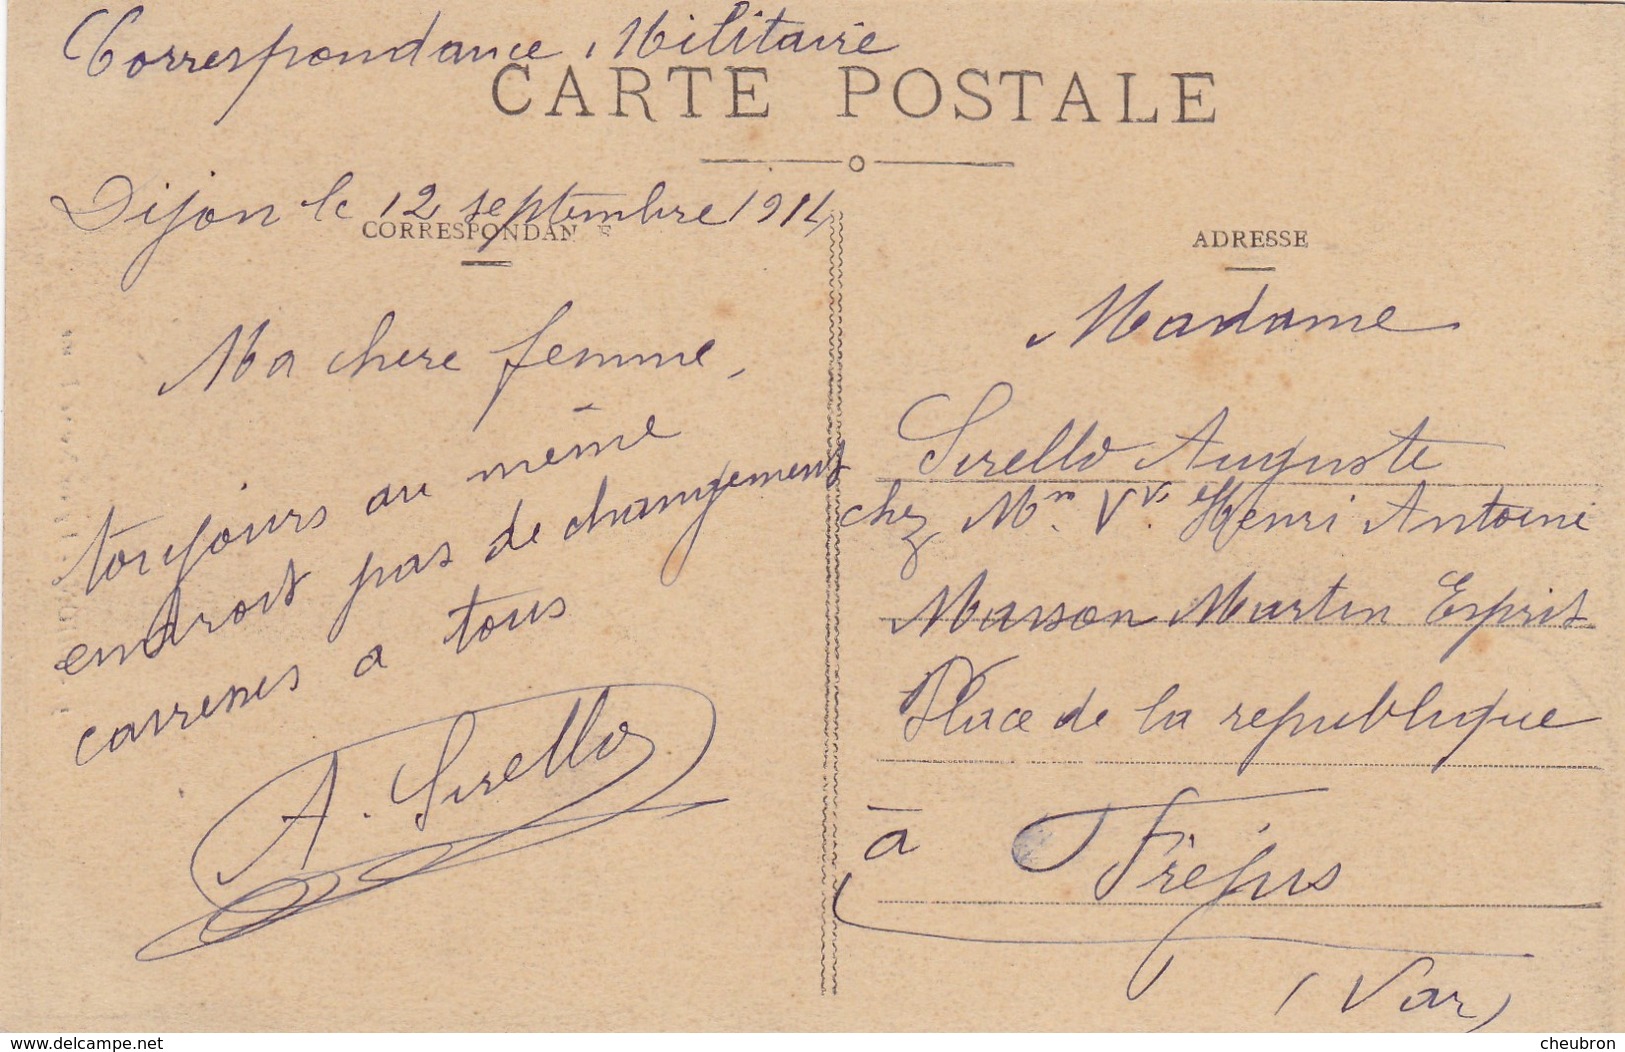 Correspondance Militaire
CARTE POSTALE
Dijon le 12 septembre 1914
CORRESPONDANCE
Ma chere femme,
toujours au même
endroit pas de changement
caresses a tous
A. Sirello
ADRESSE
Madame
Sirello Auguste
chez Mm Vve Henri Antoine
Maison Martin Esprit
Place de la republique
à Fréjus
(Var)
www.delcampe.net
cheubron